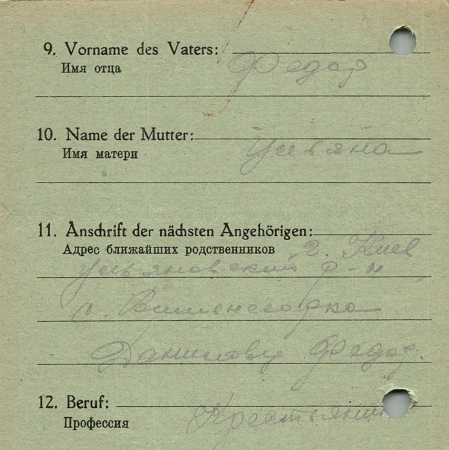 9. Vorname des Vaters:
Имя отца
Федор
10. Name der Mutter:
Имя матери
Ульяна
11. Anschrift der nächsten Angehörigen:
Адрес ближайших родственников г. Киев
Ульяновский р-н
Федор
12. Beruf:
Профессия